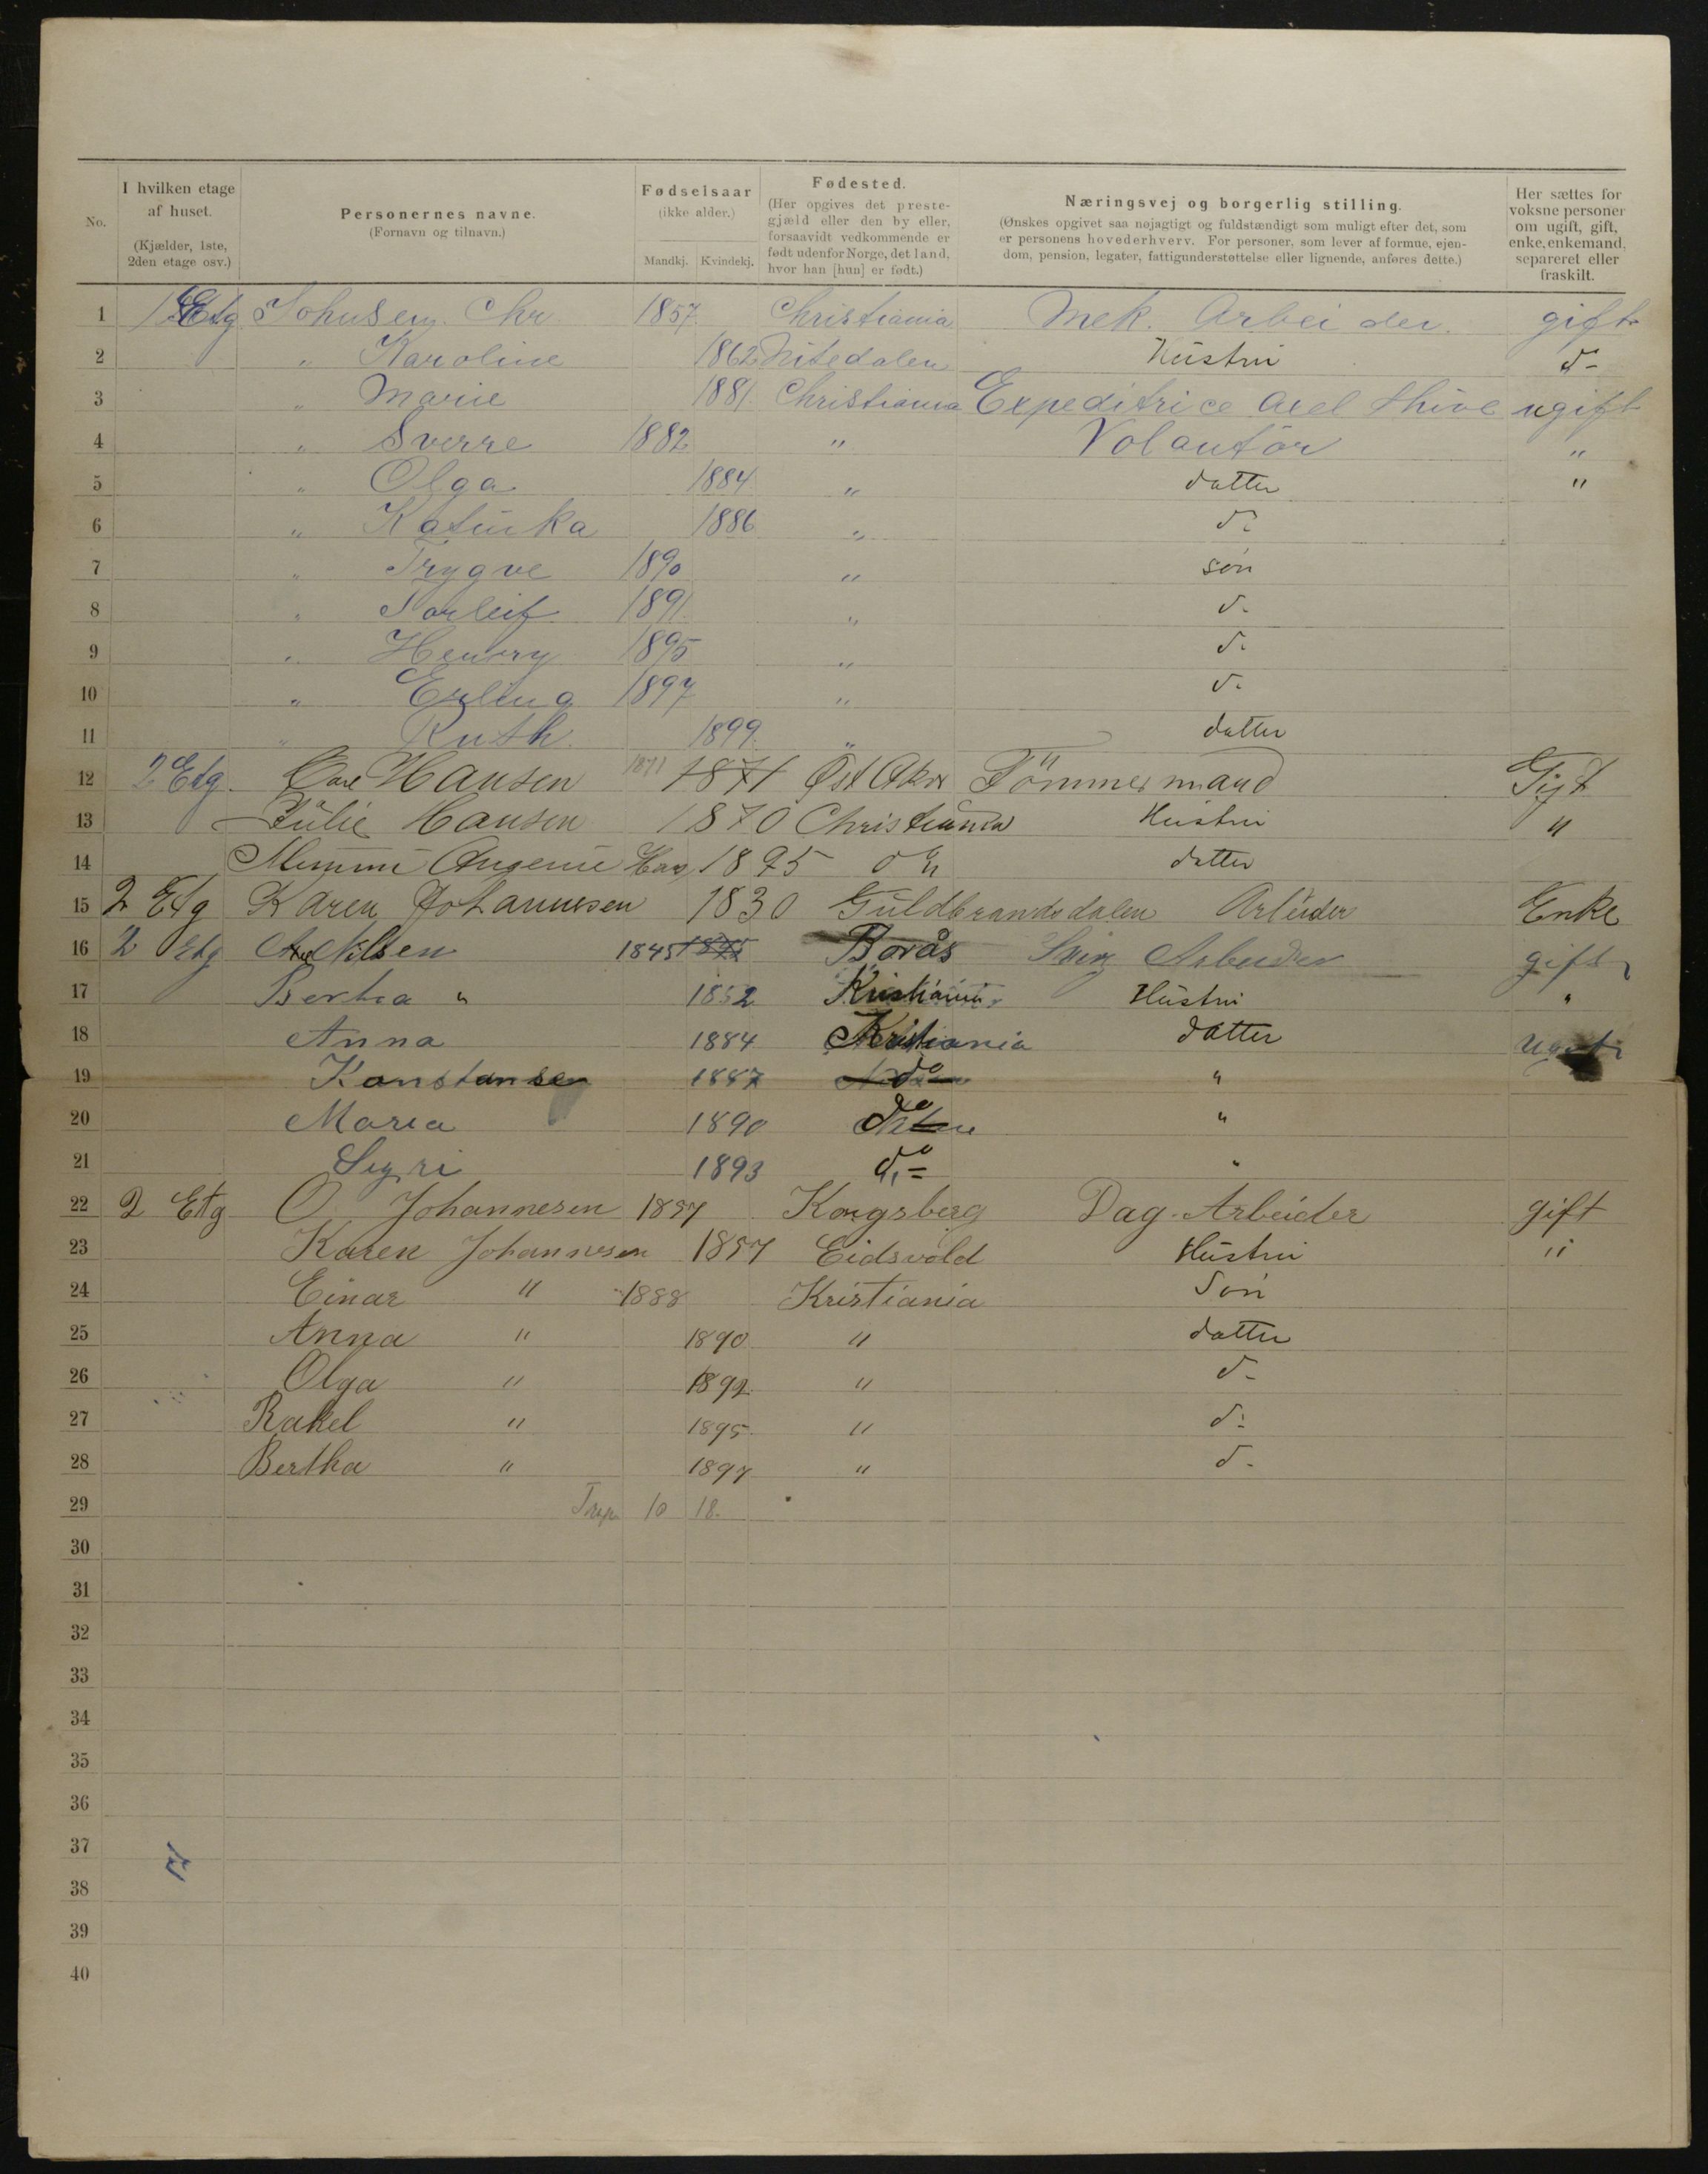 No.
I hvilken etage af huset. (Kjælder, 1ste, 2den etage osv.)
Personernes navne. (Fornavn og tilnavn.)
Fødselsaar (ikke alder.) Mandkj. Kvindekj.
Fødested. (Her opgives det prestegjæld eller den by eller, forsaavidt vedkommende er født udenfor Norge, det land, hvor han [hun] er født.)
Næringsvej og borgerlig stilling. (Ønskes opgivet saa nøjagtigt og fuldstændigt som muligt efter det, som er personens hovederhverv. For personer, som lever af formue, ejendom, pension, legater, fattigunderstøttelse eller lignende, anføres dette.)
Her sættes for voksne personer om ugift, gift, enke, enkemand, separeret eller fraskilt.
1 1 Etg Johnsen Chr 1857 Christiania Mek. Arbeider. gift
2 " Karoline 1862 Nitedalen Hustru do
3 " Marie 1881 Christiania Expeditrice Axel ugift
4 " Sverre 1882 " Volantör "
5 " Olga 1884 " datter "
6 " Katinka 1886 " do
7 " Trygve 1890 " søn
8 " Torleif 1891 " do
9 " Henrry 1895 " do
10 " Erling 1897 " do
11 " Ruth 1899 " datter
12 2 Etg. Carl Hansen 1871 1871 Øst Aker Tömmermand Gift
13 Julie Hansen 1870 Christiania Hustru "
14 1895 do datter
15 2 Etg Karen Johannesen 1830 Guldbrandsdalen Arbeider Enke
16 2 Etg Nilsen 1845 1845 Borås Arbeider gift
17 Berta " 1852 Kristiania Hustru "
18 Anna 1884 Kristiania datter ugift
19 Konstanse 1887 do "
20 Maria 1890 do "
21 Sigri 1893 do "
22 2 Etg O Johannesen 1857 Kongsberg Dag. Arbeider gift
23 Karen Johannesen 1857 Eidsvold Hustru "
24 Einar " 1888 Kristiania Søn
25 Anna " 1890 " datter
26 Olga " 1892 " do
27 Rakel " 1895 " do
28 Bertha " 1897 " do
29 10 18.
30
31
32
33
34
35
36
37
38
39
40